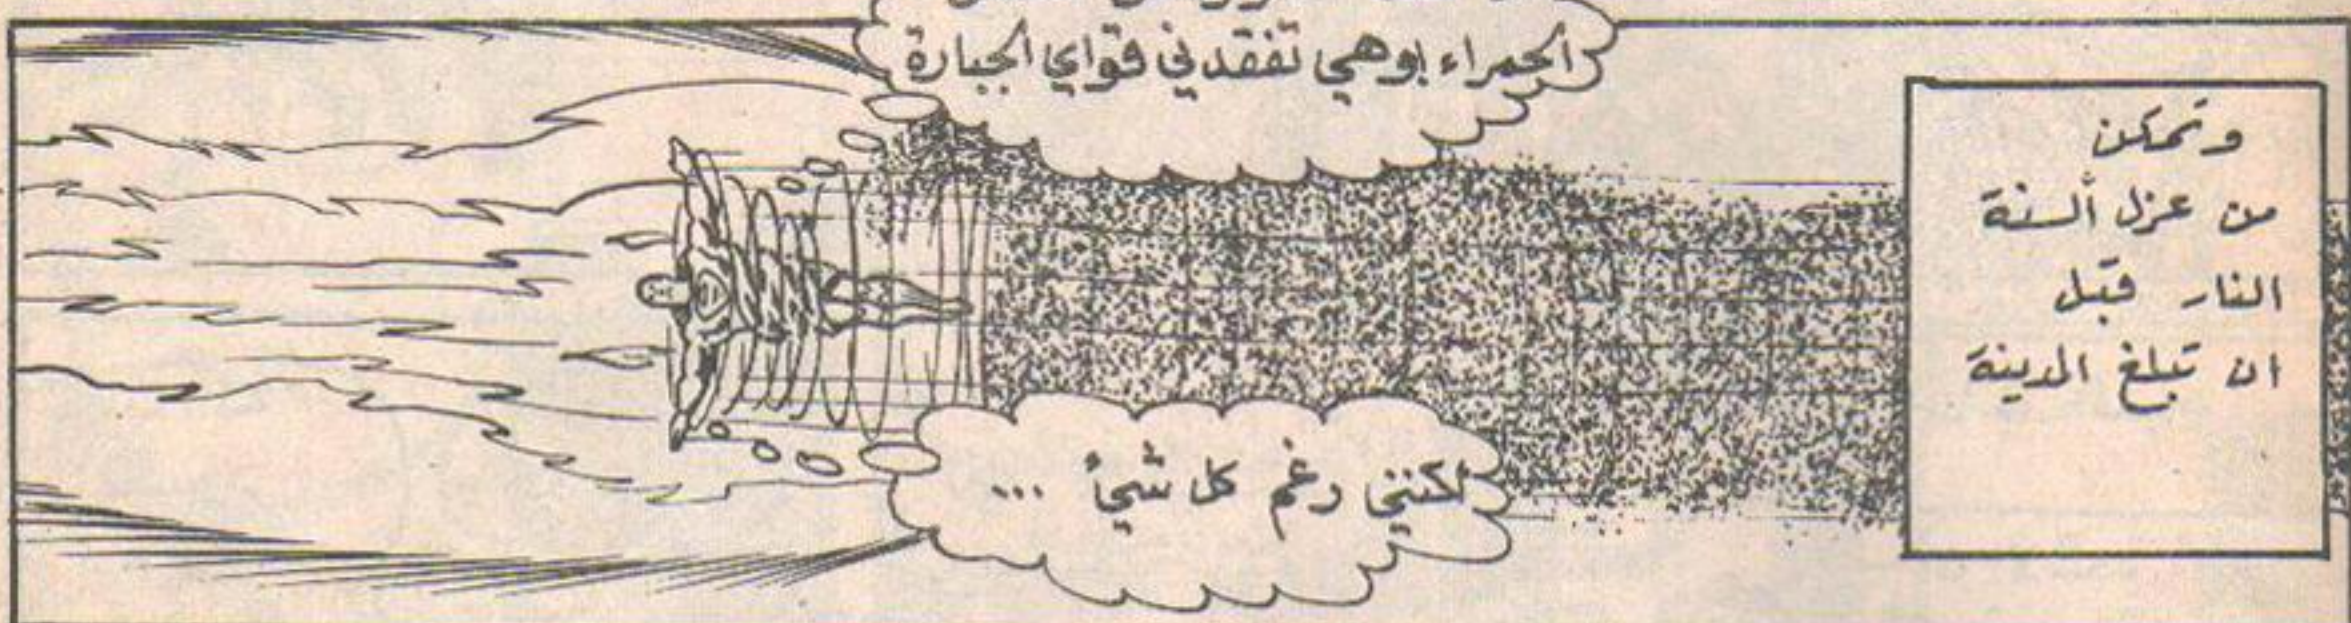 وتمكن
من عزل ألسنة
النار قبل
ان تبلغ المدينة
الحمراء ! وهي تفقدني قواي الجبارة
لكنني رغم كل شيئ ...